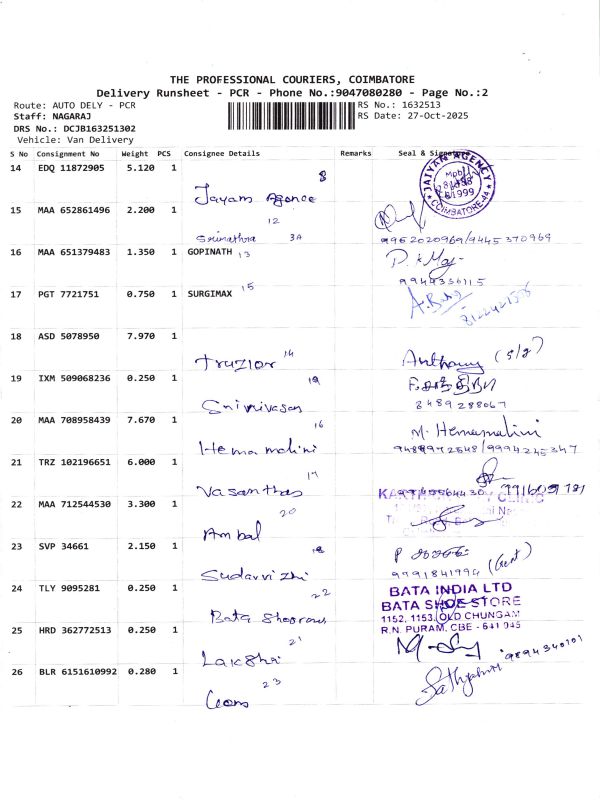 THE PROFESSIONAL COURIERS, COIMBATORE
Delivery Runsheet - PCR - Phone No.:9047080280 - Page No.:2
Route: AUTO DELY - PCR
RS No.: 1632513
Staff: NAGARAJ
RS Date: 27-Oct-2025
DRS No.: DCJB163251302
Vehicle: Van Delivery
S No Consignment No Weight PCS Consignee Details Remarks Seal & Signature
14 EDQ 11872905 5.120 1 8
JAIYAN AGENCY
COIMBATORE-44
Jayam Agence
15 MAA 652861496 2.200 1 12
Srinathra 3A 9962020969/9445370969
16 MAA 651379483 1.350 1 GOPINATH 13
9944356115
17 PGT 7721751 0.750 1 SURGIMAX 15
18 ASD 5078950 7.970 1 14
Anthony (S/g)
19 IXM 509068236 0.250 1 19
Srinivasan 8489288067
20 MAA 708958439 7.670 1 16 M. Hemamalini
Hema malini 9489972548/9994245347
21 TRZ 102196651 6.000 1 17
Vasanthas
22 MAA 712544530 3.300 1 20
Ambal
23 SVP 34661 2.150 1 18
Sudarvizhi 9991841994
24 TLY 9095281 0.250 1 22 BATA INDIA LTD
BATA SHOE STORE
Bata 1152, 1153, OLD CHUNGAM
25 HRD 362772513 0.250 1 21 R.N. PURAM, CBE - 641 045
Lakshi
26 BLR 6151610992 0.280 1 23 9894340101